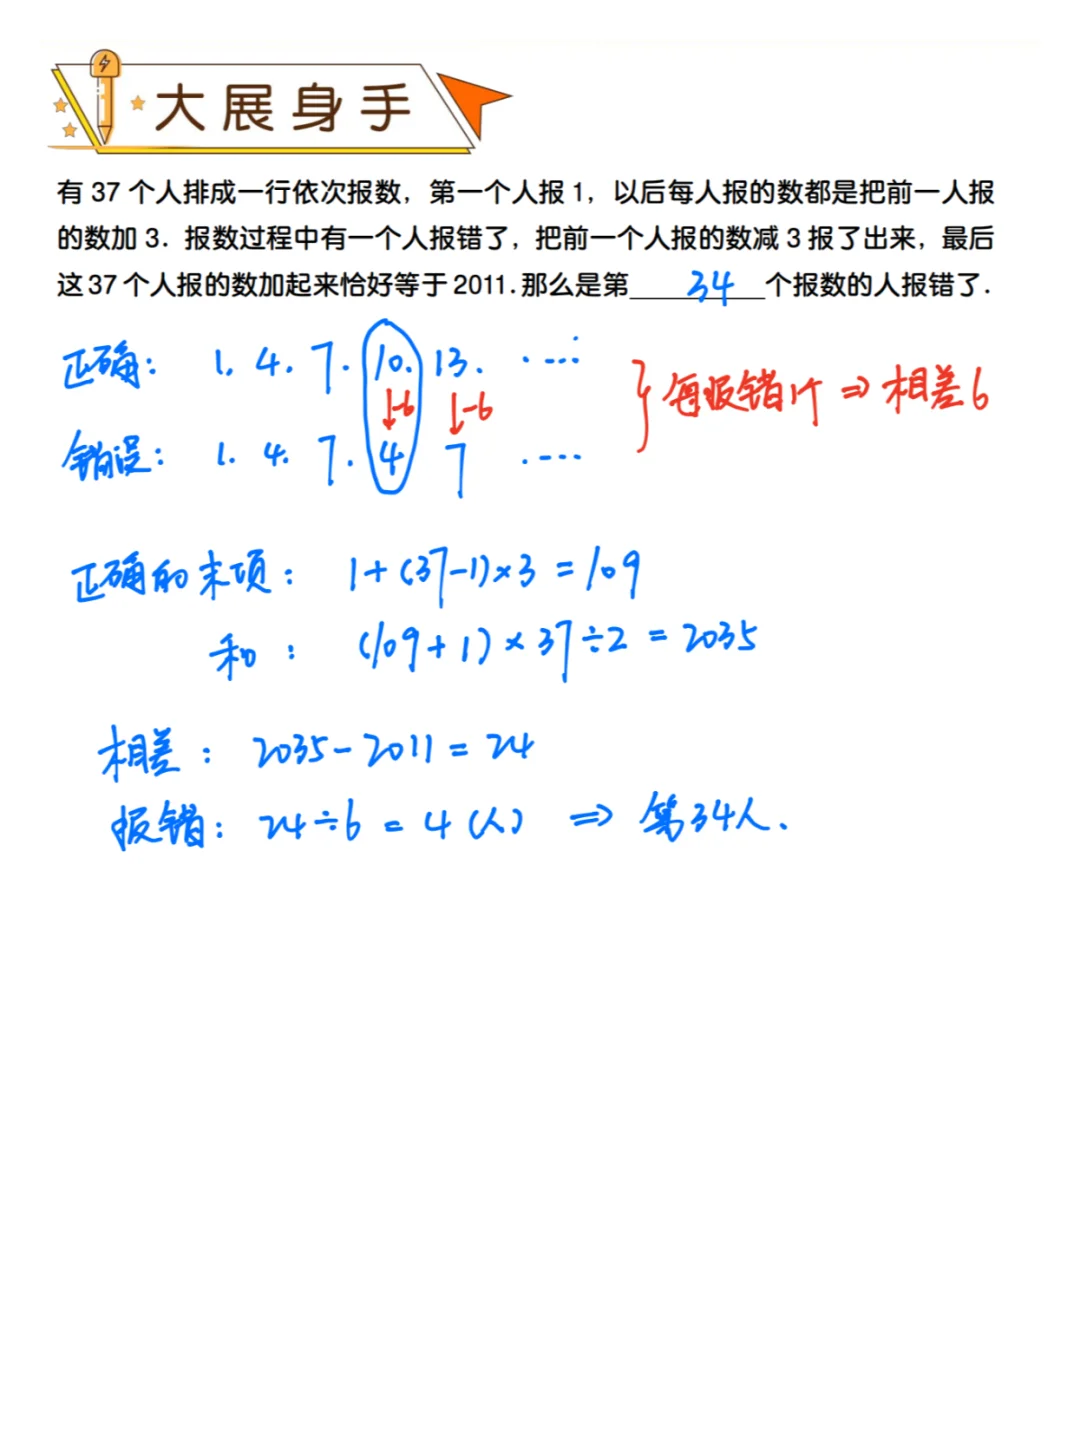 大展身手
有 37 个人排成一行依次报数，第一个人报 1，以后每人报的数都是把前一人报
的数加 3．报数过程中有一个人报错了，把前一个人报的数减 3 报了出来，最后
这 37 个人报的数加起来恰好等于 2011．那么是第 34 个报数的人报错了．
正确： 1. 4. 7. 10. 13. ....
↓-6 ↓-6
} 每报错1个 ⇒ 相差6
错误： 1. 4. 7. 4 7 ....
正确的末项： 1+(37-1)×3=109
和： (109+1)×37÷2=2035
相差： 2035-2011=24
报错： 24÷6=4(人) ⇒ 第34人.